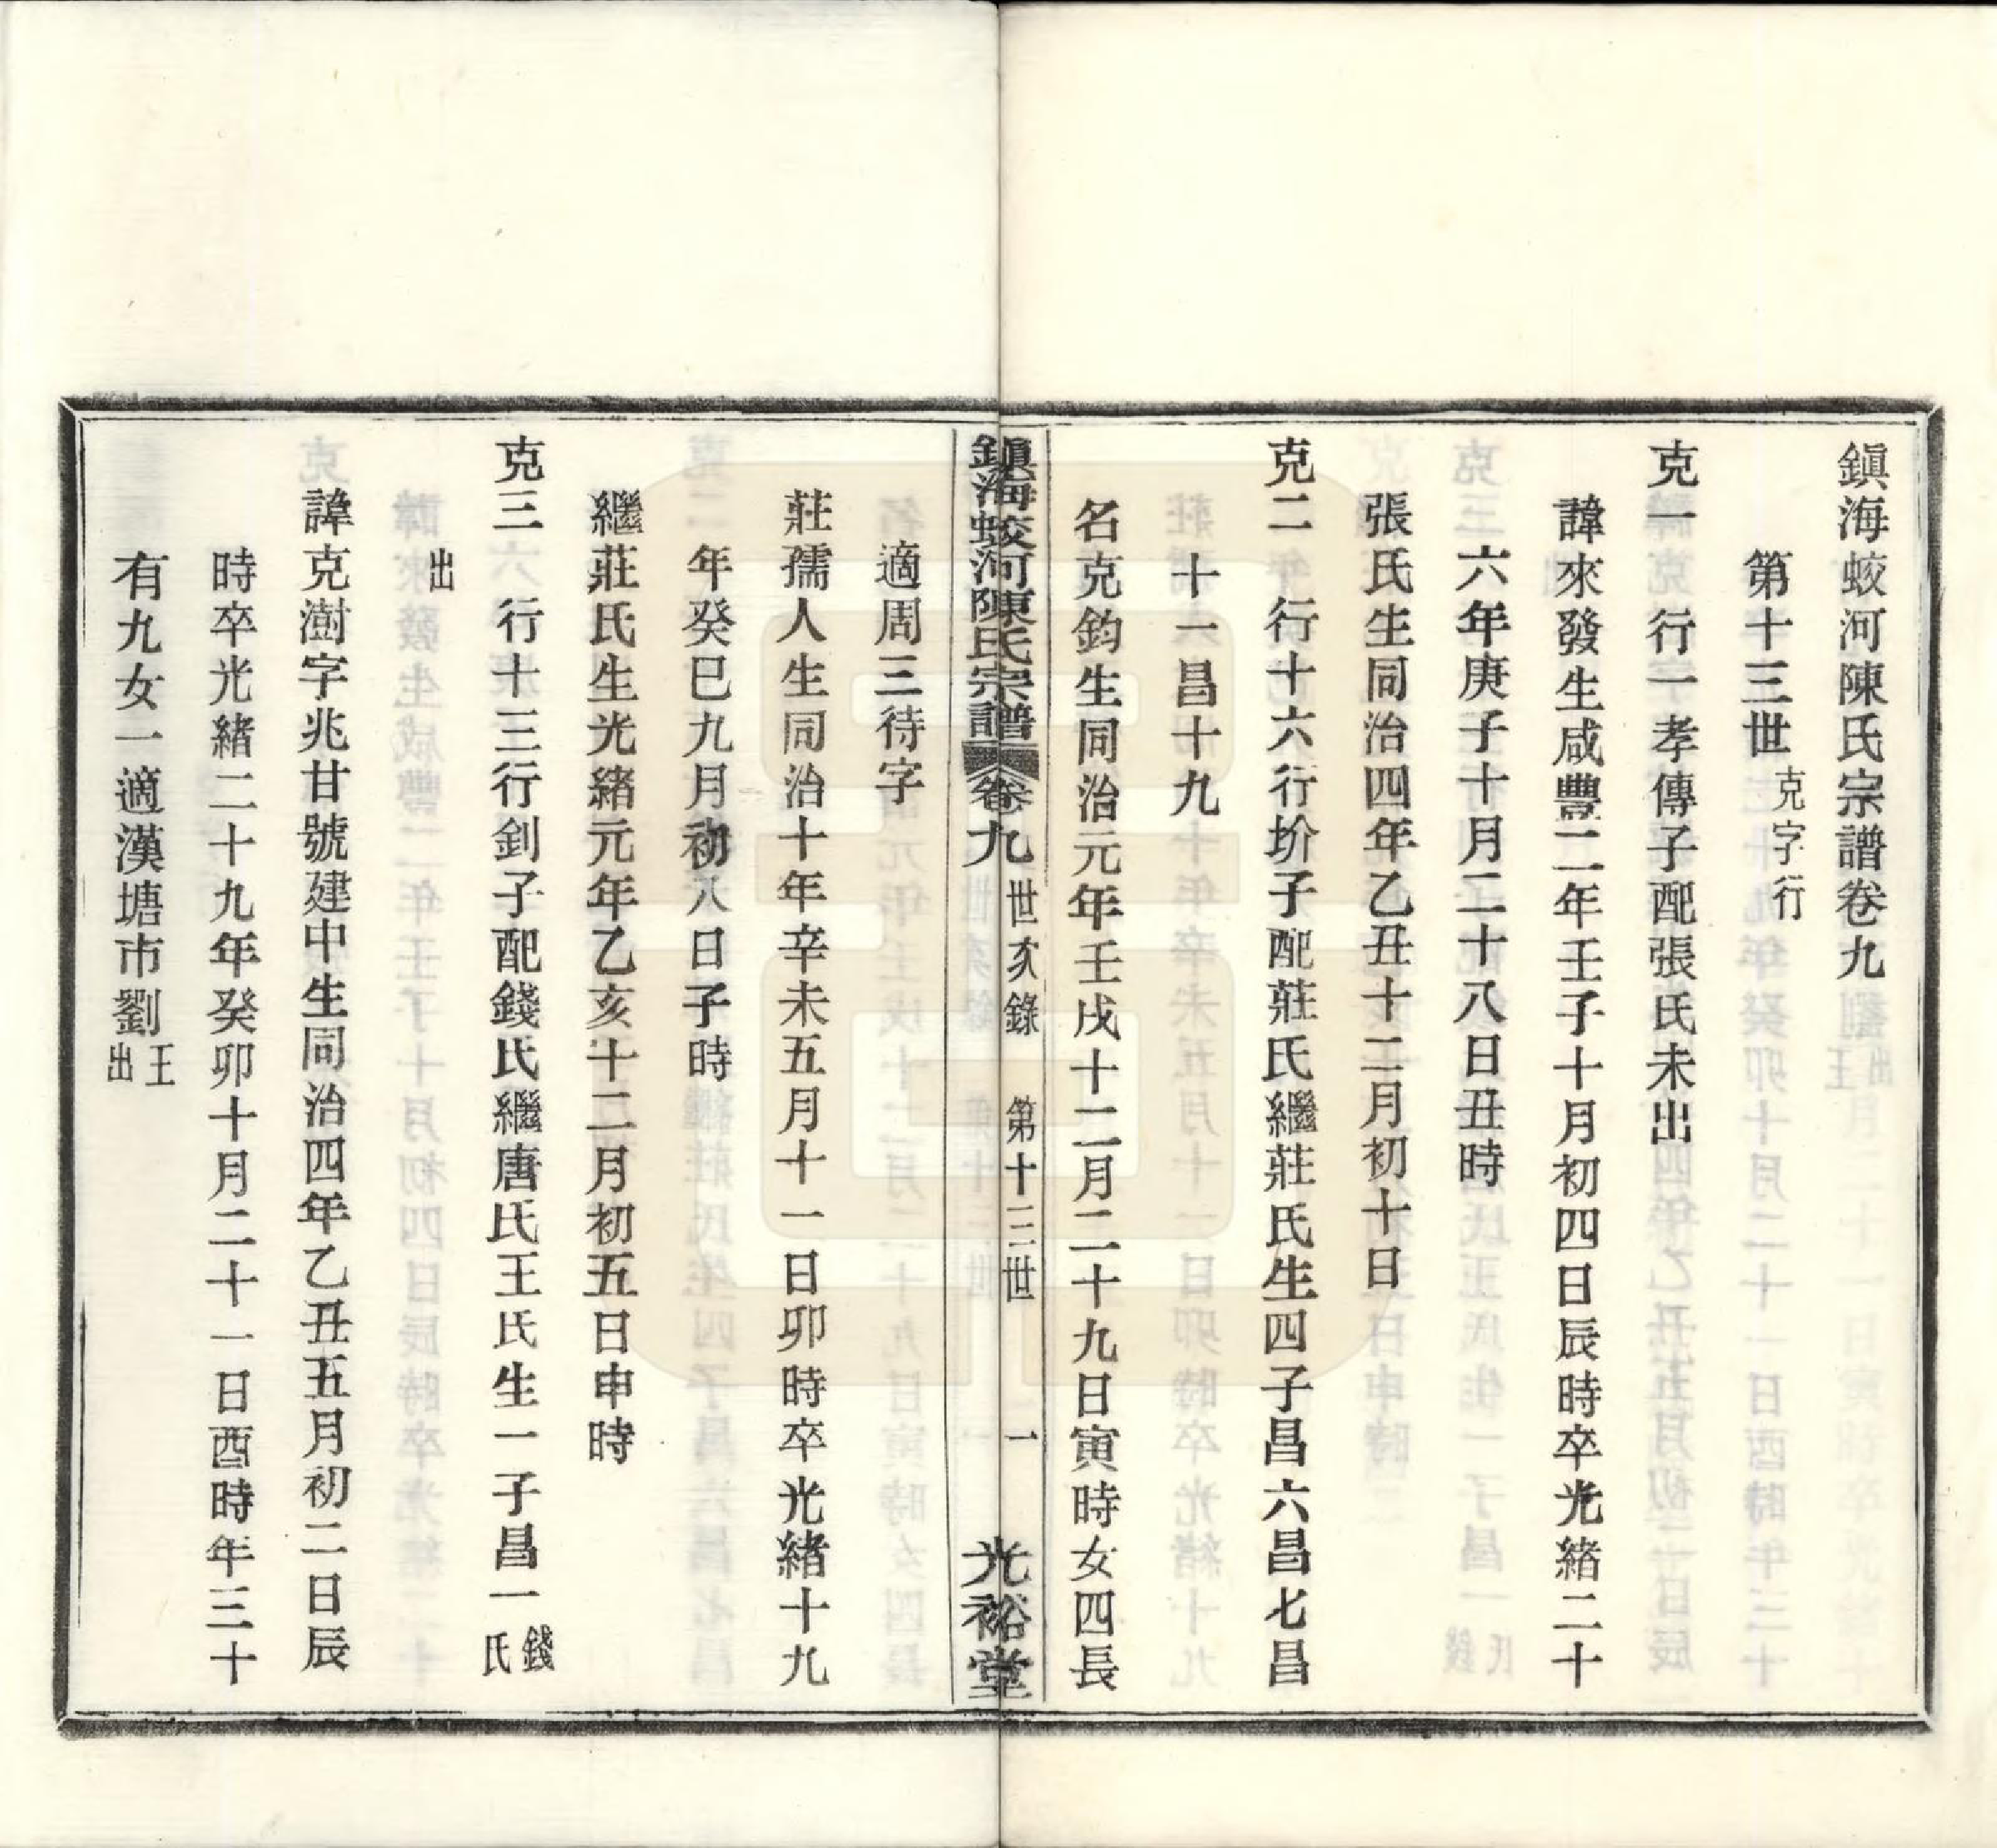 鎮海蛟河陳氏宗譜卷九
第十三世克字行
克一　行一孝傳子配張氏未出
諱來發生咸豐二年壬子十月初四日辰時卒光緒二十
六年庚子十月二十八日丑時
張氏生同治四年乙丑十二月初十日
克二　行十六行价子配莊氏繼莊氏生四子昌六昌七昌
十一昌十九
名克鈞生同治元年壬戌十二月二十九日寅時女四長
鎮海蛟河陳氏宗譜　卷九　世系錄　第十三世　一　光裕堂
適周三待字
莊孺人生同治十年辛未五月十一日卯時卒光緒十九
年癸巳九月初八日子時
繼莊氏生光緒元年乙亥十二月初五日申時
克三　行十三行釗子配錢氏繼唐氏王氏生一子昌一錢氏
出
諱克澍字兆甘號建中生同治四年乙丑五月初二日辰
時卒光緒二十九年癸卯十月二十一日酉時年三十
有九女一適漢塘市劉王出